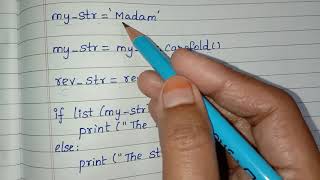 my_str = 'Madam'
my_str = my_ casefold()
rev_str = re
if list (my_str
print ("The
else:
print ("The st